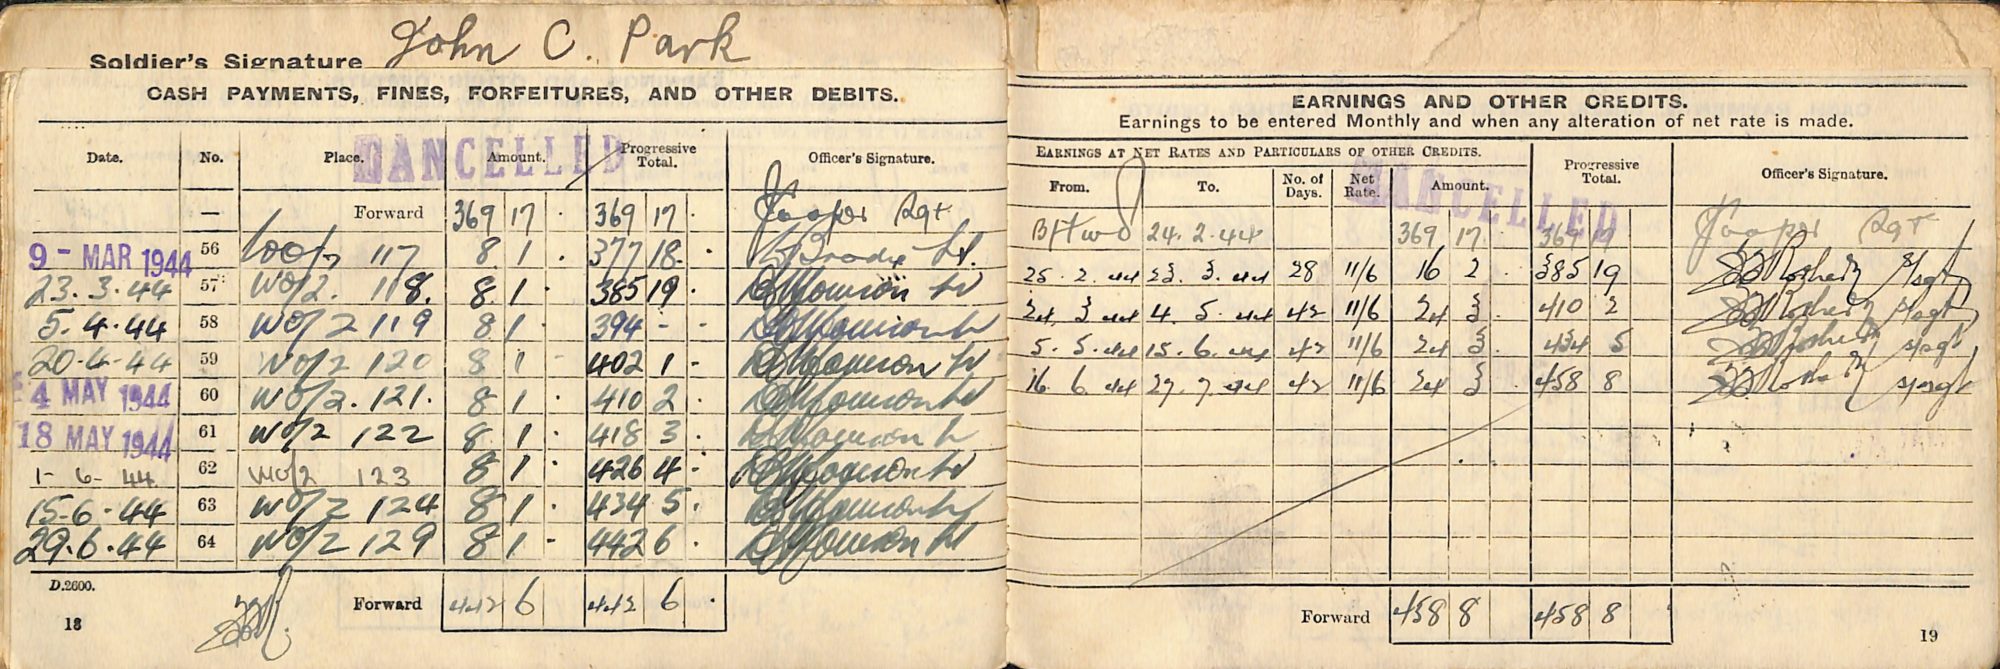 Soldier's Signature John C. Park
CASH PAYMENTS, FINES, FORFEITURES, AND OTHER DEBITS.
CANCELLED
Date. No. Place. Amount. Progressive Total. Officer's Signature.
— Forward 369 17 . 369 17 . Sgt
9 - MAR 1944 56 117 8 1 . 377 18 . Lt.
23.3.44 57 WO/2. 118. 8 1 . 385 19 . Lt
5.4.44 58 WO/2 119 8 1 . 394 - - Lt
20.4.44 59 WO/2 120 8 1 - 402 1 - Lt
4 MAY 1944 60 WO/2. 121. 8 1 . 410 2 . Lt
18 MAY 1944 61 WO/2 122 8 1 . 418 3 .
1-6-44 62 WO/2 123 8 1 . 426 4 . Lt
15.6.44 63 WO/2 124 8 1 . 434 5 .
29.6.44 64 WO/2 129 8 1 - 442 6 . Lt
D.2600.
Forward 442 6 442 6 .
18
EARNINGS AND OTHER CREDITS.
Earnings to be entered Monthly and when any alteration of net rate is made.
EARNINGS AT NET RATES AND PARTICULARS OF OTHER CREDITS.
CANCELLED
From. To. No. of Days. Net Rate. Amount. Progressive Total. Officer's Signature.
B/Fwd 24.2.44 369 17 369 17 Sgt
25.2.44 23.3.44 28 11/6 16 2 . 385 19 S/Sgt
24 3 44 4.5.44 42 11/6 24 3 410 2 S/Sgt
5.5.44 15.6.44 42 11/6 24 3 . 434 5 S/Sgt
16 6 44 27.7.44 42 11/6 24 3 . 458 8 S/Sgt
Forward 458 8 458 8
19